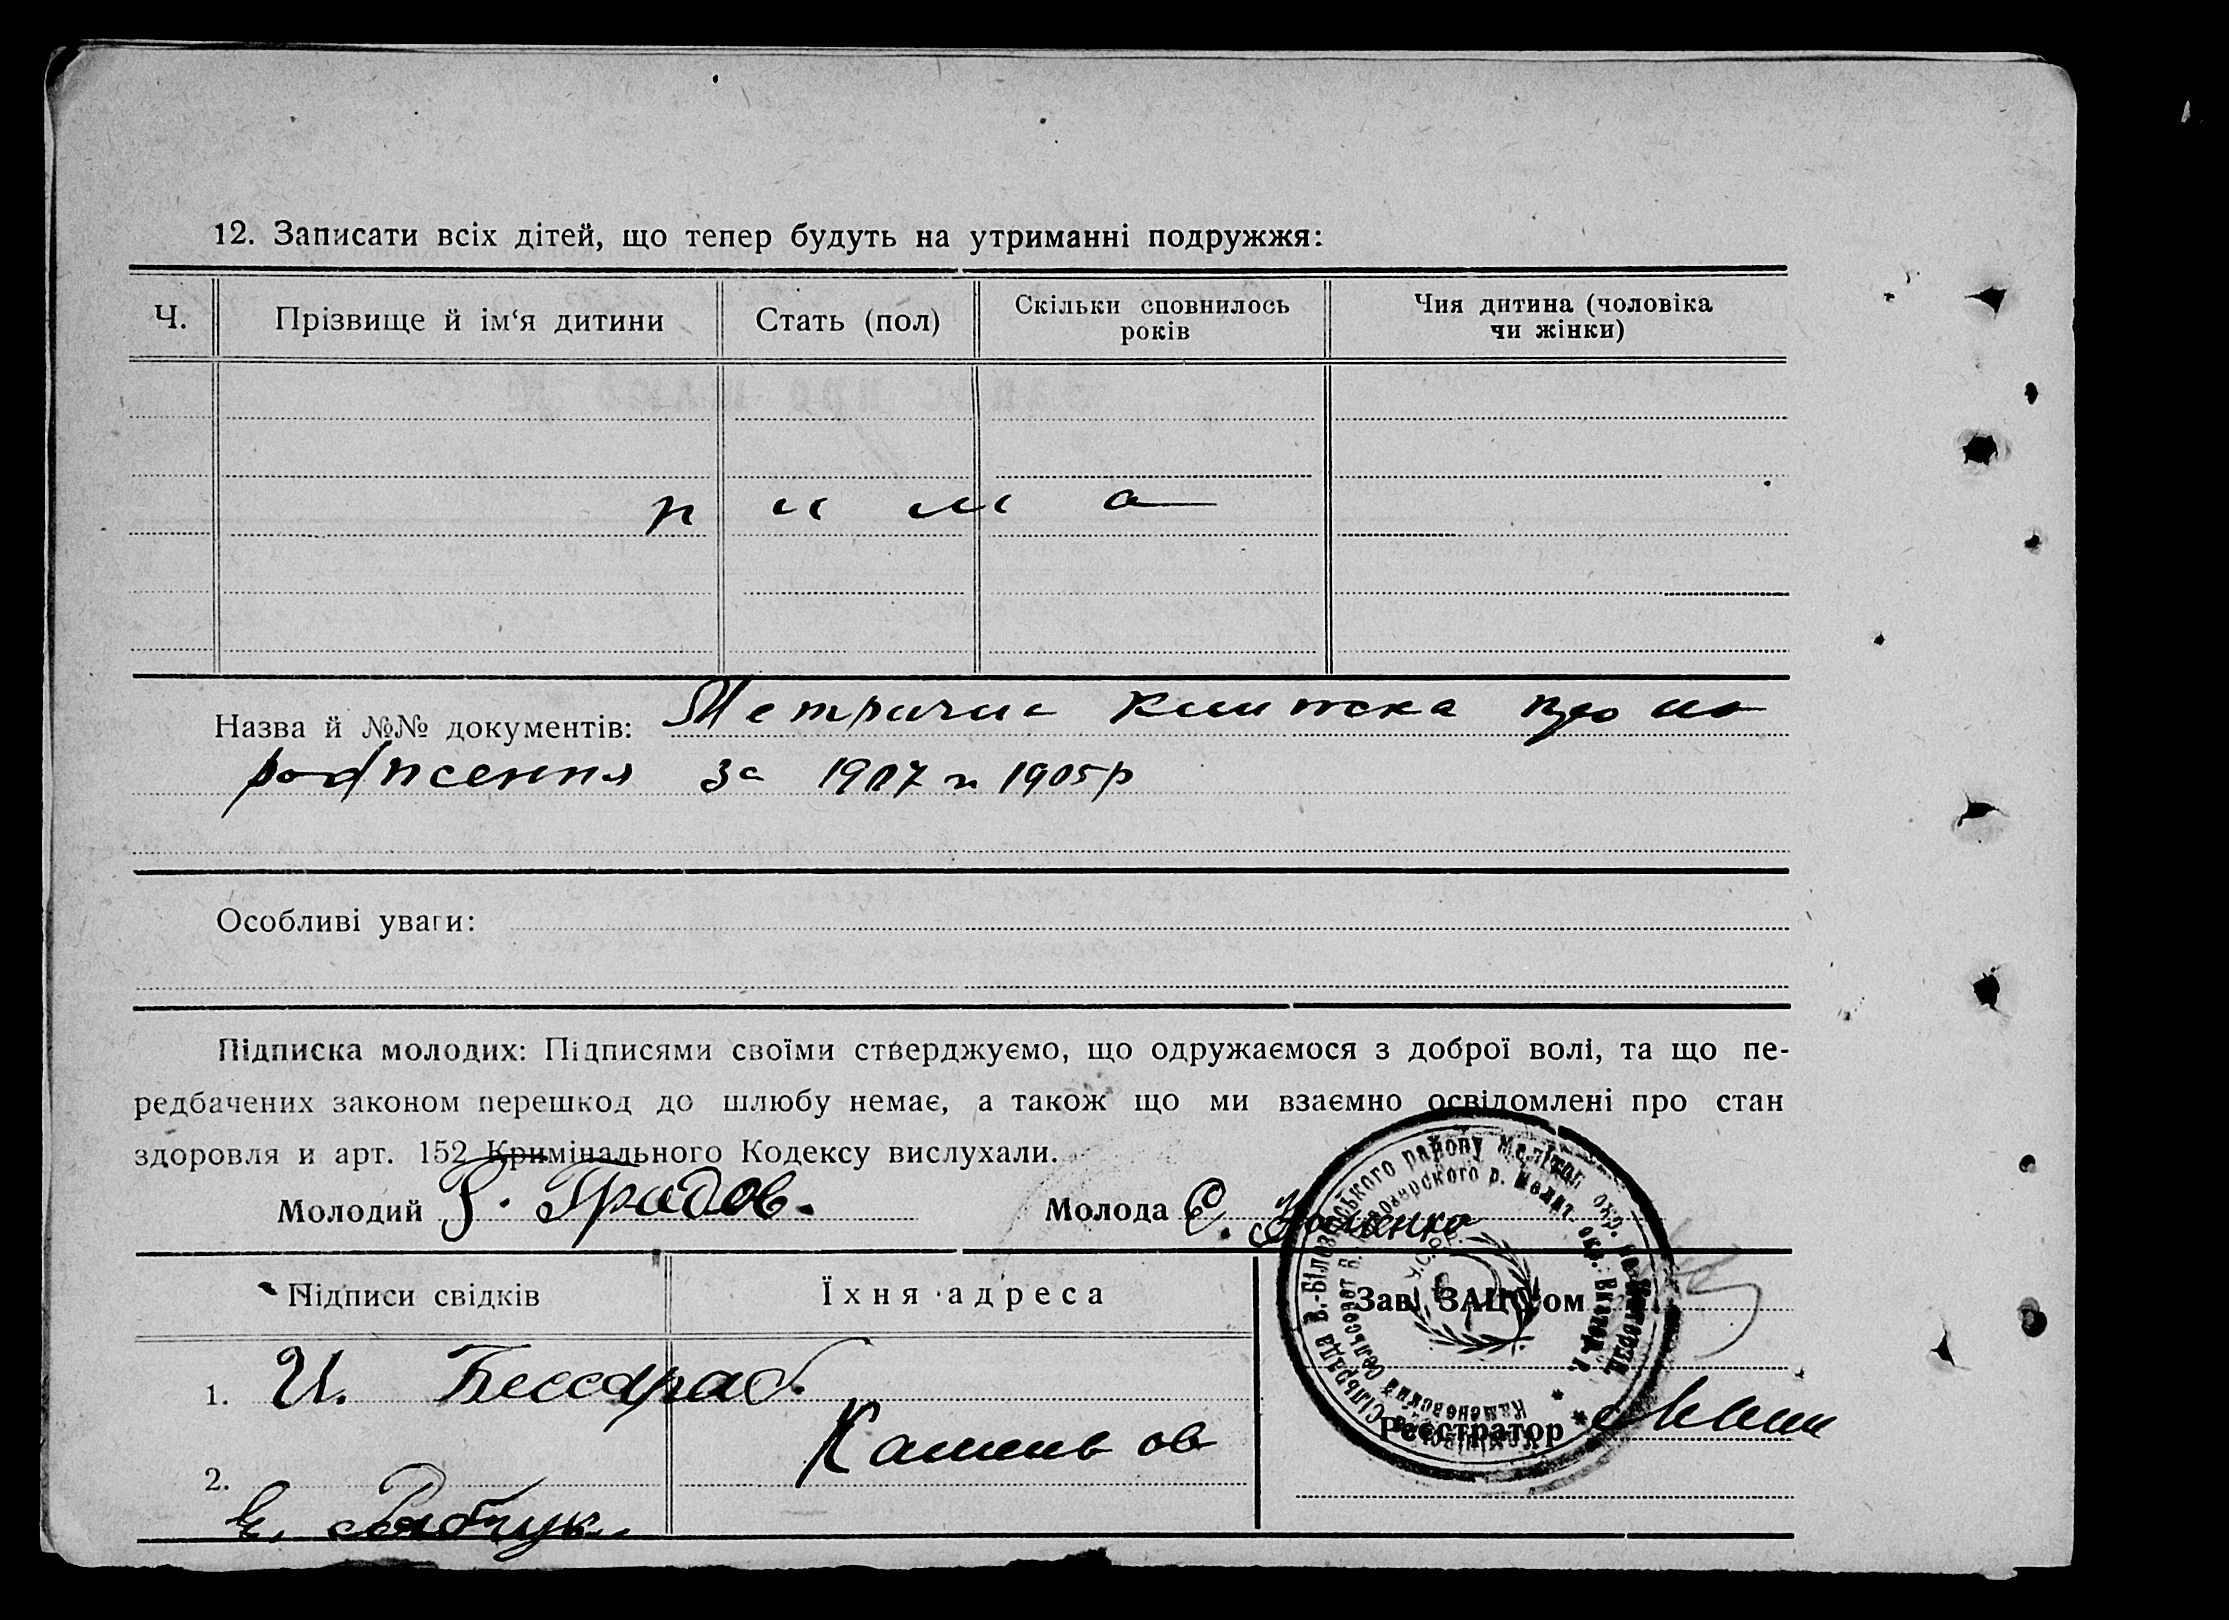 12. Записати всіх дітей, що тепер будуть на утриманні подружжя:
Ч. Прізвище й ім‘я дитини Стать (пол) Скільки сповнилось років Чия дитина (чоловіка чи жінки)
нима
Назва й №№ документів: Метрична книжка про на
родження за 1907 и 1905 р
Особливі уваги:
Підписка молодих: Підписями своїми стверджуємо, що одружаємося з доброї волі, та що пе-
редбачених законом перешкод до шлюбу немає, а також що ми взаємно освідомлені про стан
здоровля и арт. 152 Кримінального Кодексу вислухали.
Молодий Градов. Молода Є.
Підписи свідків Їхня адреса Зав. ЗАЦС‘ом
1. И. Бессараб.
Реєстратор
2.
Сільрада В.-Білозерського району Мелітоп. окр.
Каменевский Сельсовет В. Белозерского р. Мелит. окр. Екатер. г.
У.С.Р.Р.